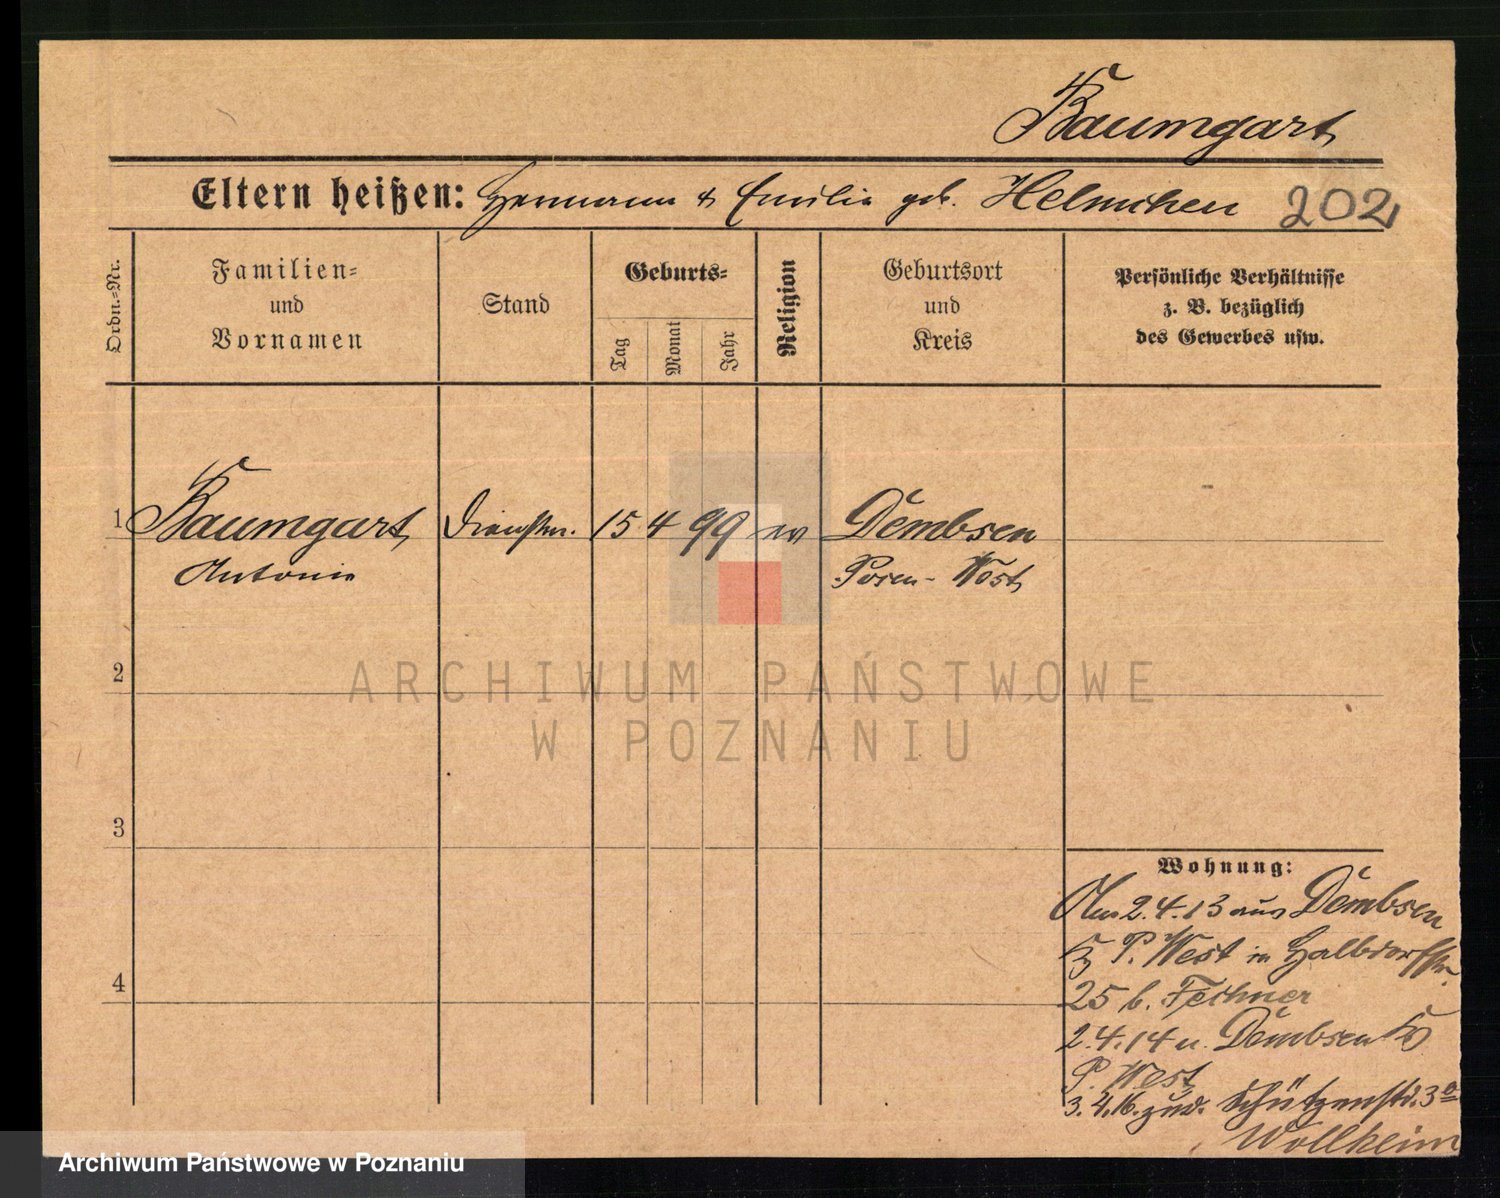 Baumgart
Eltern heißen: Hermann & Emilie geb. Helmchen 202
Ordn.-Nr.
Familien-
und
Vornamen
Stand
Geburts-
Tag
Monat
Jahr
Religion
Geburtsort
und
Kreis
Persönliche Verhältnisse
z. B. bezüglich
des Gewerbes usw.
1 Baumgart Dienstm. 15 4 99 ev Dembsen
Antonie Posen-West
2
ARCHIWUM PAŃSTWOWE
W POZNANIU
3
4
Wohnung:
Am 2.4.13 aus Dembsen
Kr P. West in Halbdorfstr.
25 b. Fechner
2.4.14 n. Dembsen Kr
P. West
3.4.16. zur. Schützenstr. 3a
Wollheim
Archiwum Państwowe w Poznaniu